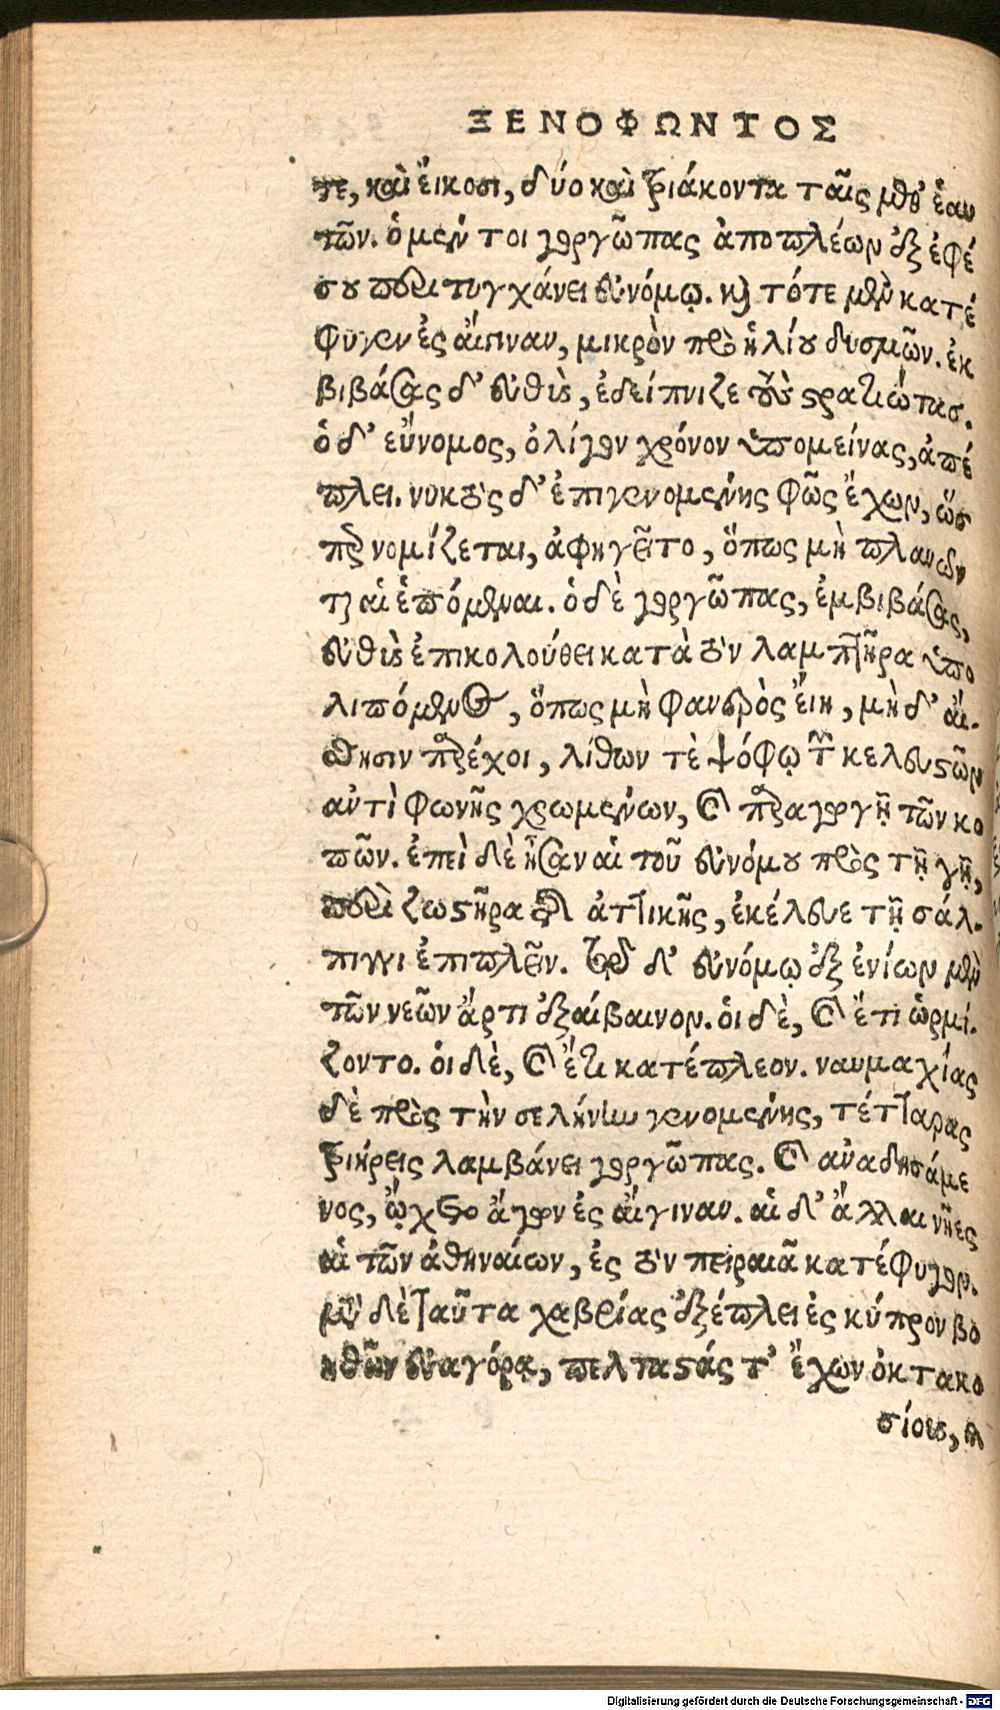 ΞΕΝΟΦΩΝΤΟΣ
τε, καὶ ἔικοσι, δύο καὶ τριάκοντα ταῖς μεθ᾽ ἑαυ
τῶν. ὁ μέν τοι γοργῶπας ἀποπλέων ἐξ ἐφέ
σου περιτυγχάνει εὐνόμῳ. καὶ τότε μὲν κατέ
φυγεν ἐς αἴγιναν, μικρὸν πρὸ ἡλίου δυσμῶν. ἐκ
βιβάσας δ᾽ εὐθὺς, ἐδείπνιζε τοὺς στρατιώτας.
ὁ δ᾽ εὔνομος, ὀλίγον χρόνον ὑπομείνας, ἀπέ
πλει. νυκτὸς δ᾽ ἐπιγενομένης φῶς ἔχων, ὥσ
περ νομίζεται, ἀφηγεῖτο, ὅπως μὴ πλανῶν
ται αἱ ἑπόμεναι. ὁ δὲ γοργῶπας, ἐμβιβάσας,
εὐθὺς ἐπικολούθει κατὰ τὸν λαμπτῆρα ὑπο
λιπόμενος, ὅπως μὴ φανερὸς ἔιη, μὴ δ᾽ ἄι-
σθησιν παρέχοι, λίθων τὲ ψόφῳ τῶν κελευστῶν
αὐτὶ φωνῆς χρωμένων, καὶ παραγωγῇ τῶν κο
πῶν. ἐπεὶ δὲ ἦσαν αἱ τοῦ εὐνόμου πρὸς τῇ γῇ,
περὶ ζωστῆρα τῆς ἀττικῆς, ἐκέλευε τῇ σάλ-
πιγγι ἐπιπλεῖν. τῷ δ᾽ εὐνόμῳ ἐξ ἐνίων μὲν
τῶν νεῶν ἄρτι ἐξαίβαινον. οἱ δὲ, καὶ ἔτι ὡρμί-
ζοντο. οἱ δὲ, καὶ ἔτι κατέπλεον. ναυμαχίας
δὲ πρὸς τὴν σελήνην γενομένης, τέτταρας
τριήρεις λαμβάνει γοργῶπας. καὶ ἀναδησάμε
νος, ᾤχετο ἄγων ἐς αἴγιναν. αἱ δ᾽ ἄλλαι νῆες
αἱ τῶν ἀθηναίων, ἐς τὸν πειραιᾶ κατέφυγον.
μετὰ δὲ ταῦτα χαβρίας ἐξέπλει ἐς κύπρον βο
ηθῶν εὐαγόρᾳ, πελταστάς τ᾽ ἔχων ὀκτακο
σίους, καὶ